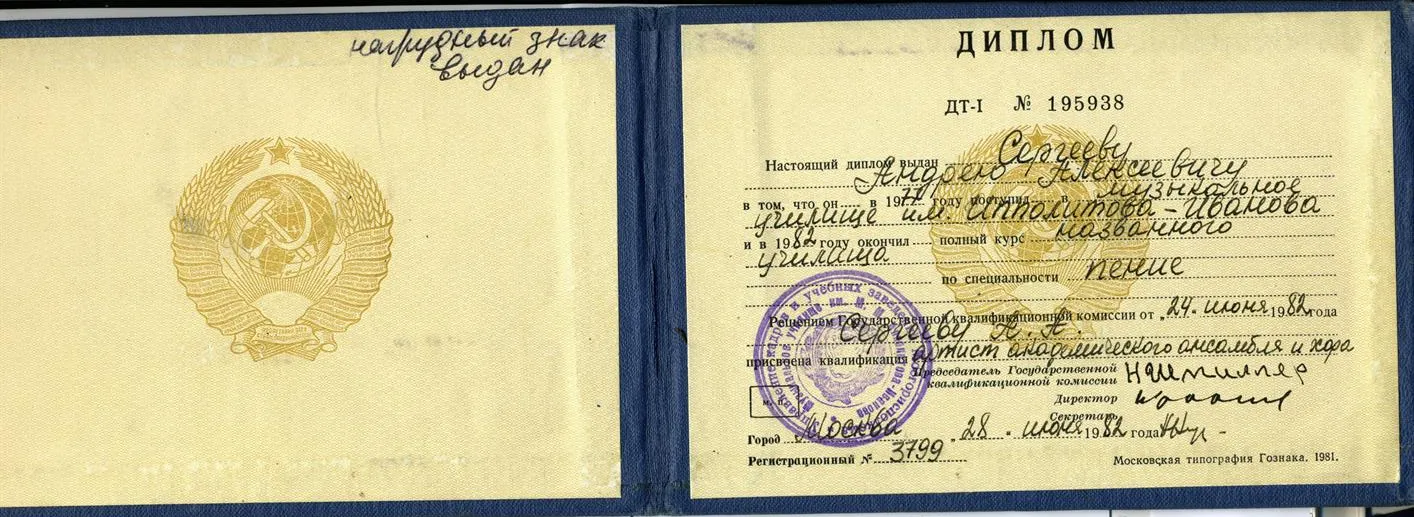 нагрудный знак
выдан
ДИПЛОМ
ДТ-I № 195938
Настоящий диплом выдан Сергееву
Андрею Алексеевичу
в том, что он в 19 году поступил в музыкальное
училище им. Ипполитова-Иванова
и в 1982 году окончил полный курс названного
училища
по специальности пение
Решением Государственной квалификационной комиссии от „24" июня 1982 года
Сергееву А. А.
присвоена квалификация артист академического ансамбля и хора
Председатель Государственной
квалификационной комиссии
Директор
Секретарь
М. П.
Город Москва „28" июня 1982 года
Регистрационный № 3799
Московская типография Гознака. 1981.